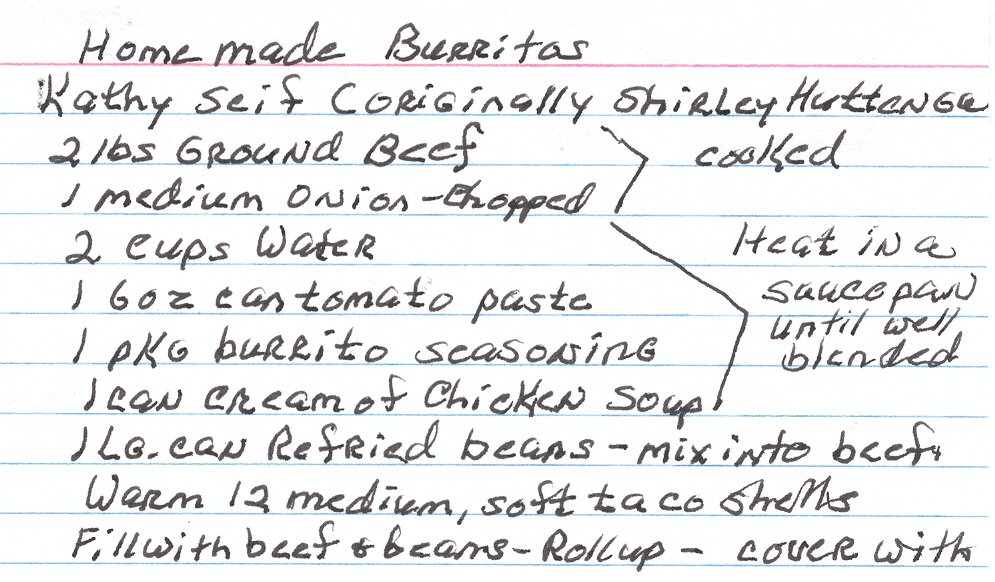 Home made Burritos
Kathy Seif (originally Shirley Huttenga
2 lbs Ground Beef
cooked
1 medium Onion - Chopped
2 cups Water
Heat in a
1 6oz can tomato paste
saucepan
until well
1 pkg burrito seasoning
blended
1 can cream of Chicken Soup
1 Lg. can Refried beans - mix into beef.
Warm 12 medium, soft taco shells
Fill with beef & beans - Roll up - cover with